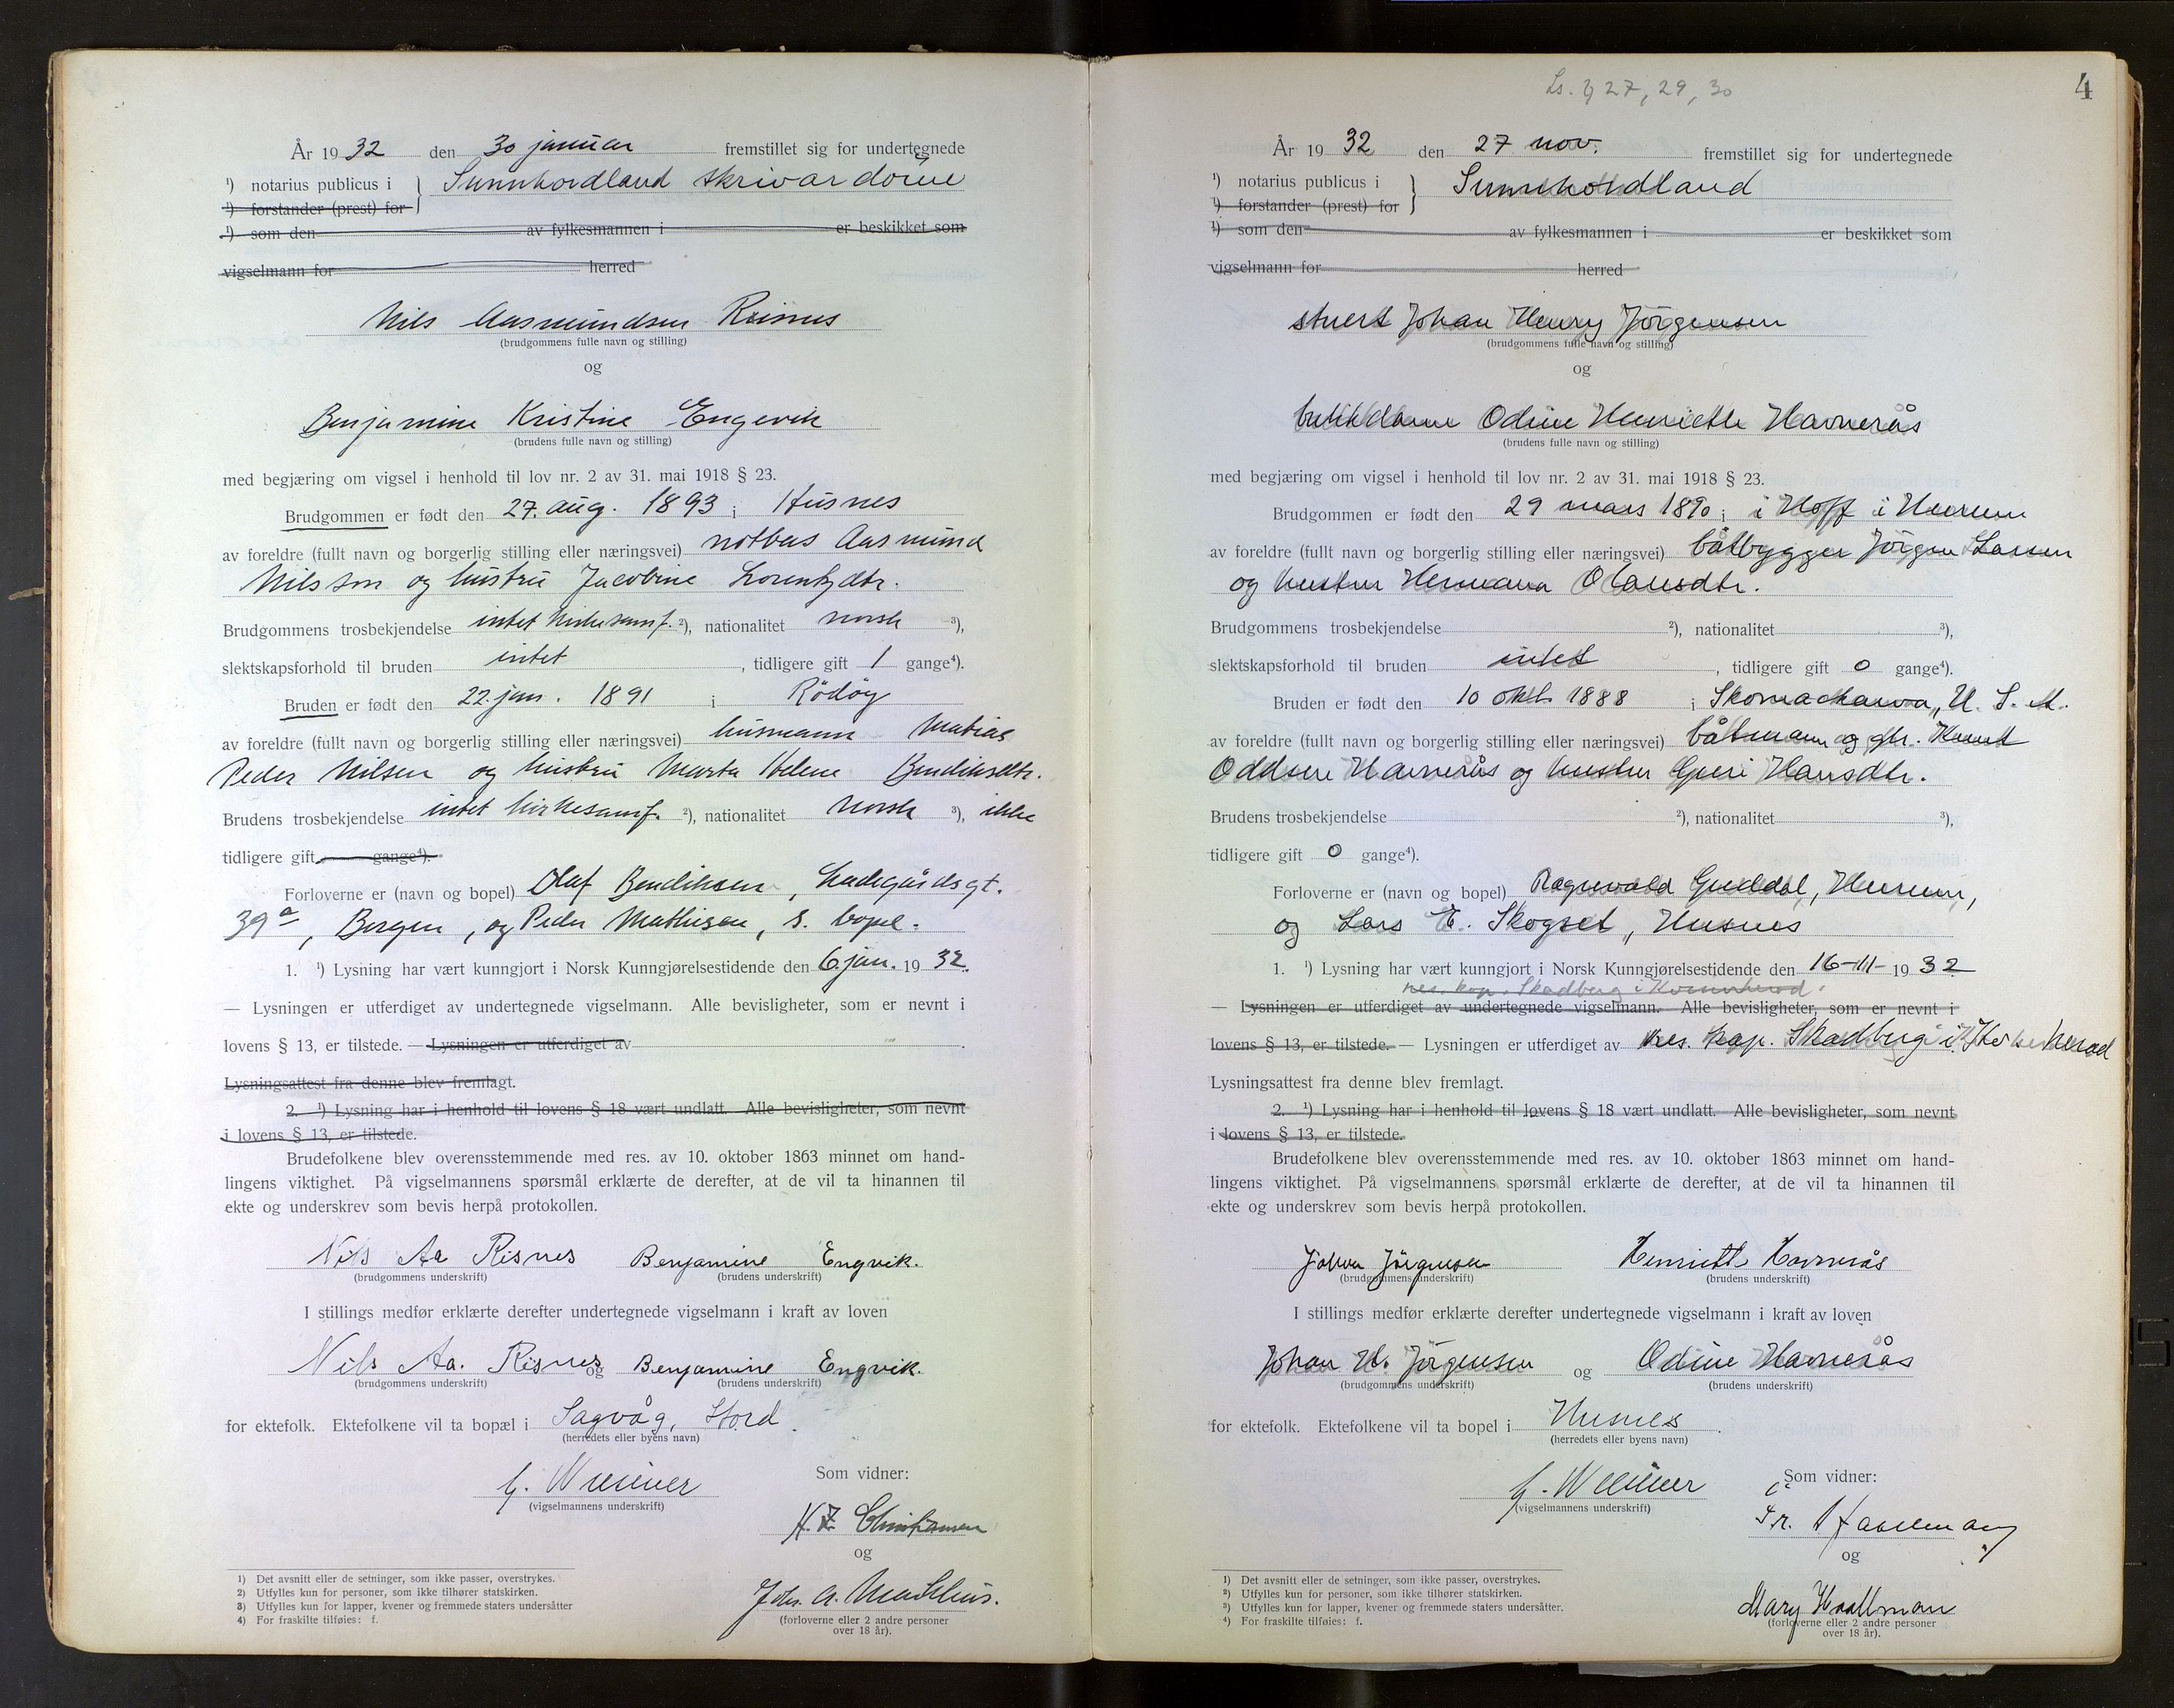 År 1932 den 30 januar fremstillet sig for undertegnede
¹) notarius publicus i } Sunnhordland skrivardöme
¹) forstander (prest) for
¹) som den av fylkesmannen i er beskikket som
vigselmann for herred
Nils Aasmundsen Risnes
(brudgommens fulle navn og stilling)
og
Benjamine Kristine Engevik
(brudens fulle navn og stilling)
med begjæring om vigsel i henhold til lov nr. 2 av 31. mai 1918 § 23.
Brudgommen er født den 27. aug. 1893 i Husnes
av foreldre (fullt navn og borgerlig stilling eller næringsvei) notbas Aasmund
Nilsson og hustru Jacobine Lorentzdtr.
Brudgommens trosbekjendelse intet kirkesamf. ²), nationalitet norsk ³),
slektskapsforhold til bruden intet , tidligere gift 1 gange⁴).
Bruden er født den 22. jan. 1891 i Rödöy
av foreldre (fullt navn og borgerlig stilling eller næringsvei) husmann Matias
Peder Nilsen og hustru Marta Helene Bendiksdtr.
Brudens trosbekjendelse intet kirkesamf. ²), nationalitet norsk ³), ikke
tidligere gift gange⁴).
Forloverne er (navn og bopel) Olaf Bendiksen, Ladegårdsgt.
39ª, Bergen, og Peder Mathisen, s. bopel.
1. ¹) Lysning har vært kunngjort i Norsk Kunngjørelsestidende den 6. jan. 1932.
— Lysningen er utferdiget av undertegnede vigselmann. Alle bevisligheter, som er nevnt i
lovens § 13, er tilstede. — Lysningen er utferdiget av .
Lysningsattest fra denne blev fremlagt.
2. ¹) Lysning har i henhold til lovens § 18 vært undlatt. Alle bevisligheter, som nevnt
i lovens § 13, er tilstede.
Brudefolkene blev overensstemmende med res. av 10. oktober 1863 minnet om hand-
lingens viktighet. På vigselmannens spørsmål erklærte de derefter, at de vil ta hinannen til
ekte og underskrev som bevis herpå protokollen.
Nils Aa Risnes Benjamine Engvik.
(brudgommens underskrift) (brudens underskrift)
I stillings medfør erklærte derefter undertegnede vigselmann i kraft av loven
Nils Aa. Risnes og Benjamine Engvik.
(brudgommens underskrift) (brudens underskrift)
for ektefolk. Ektefolkene vil ta bopæl i Sagvåg, Stord.
(herredets eller byens navn)
Som vidner:
(vigselmannens underskrift)
Christiansen
og
Joh. A. Mathius.
(forloverne eller 2 andre personer
over 18 år).
1) Det avsnitt eller de setninger, som ikke passer, overstrykes.
2) Utfylles kun for personer, som ikke tilhører statskirken.
3) Utfylles kun for lapper, kvener og fremmede staters undersåtter
4) For fraskilte tilføies: f.
4
27, 29, 30
År 1932 den 27 nov. fremstillet sig for undertegnede
¹) notarius publicus i } Sunnhordland
¹) forstander (prest) for
¹) som den av fylkesmannen i er beskikket som
vigselmann for herred
stuert Johan Henry Jörgensen
(brudgommens fulle navn og stilling)
og
butikkdame Odine Henriette Havnerås
(brudens fulle navn og stilling)
med begjæring om vigsel i henhold til lov nr. 2 av 31. mai 1918 § 23.
Brudgommen er født den 29 mars 1890 i i Hoff i Hurum
av foreldre (fullt navn og borgerlig stilling eller næringsvei) båtbygger Jörgen Larsen
og hustru Hermana Olausdtr.
Brudgommens trosbekjendelse ²), nationalitet ³),
slektskapsforhold til bruden intet , tidligere gift 0 gange⁴).
Bruden er født den 10 okt. 1888 i Skomackawa, U. S. A.
av foreldre (fullt navn og borgerlig stilling eller næringsvei) båtsmann og gbr. Knut
Oddsen Havnerås og hustru Guri Hansdtr.
Brudens trosbekjendelse ²), nationalitet ³),
tidligere gift 0 gange⁴).
Forloverne er (navn og bopel) Ragnvald Guldal, Hurum,
og Lars E. Skogset, Husnes
1. ¹) Lysning har vært kunngjort i Norsk Kunngjørelsestidende den 16-III- 1932
res. kap. Skadberg i Kvinnherad.
— Lysningen er utferdiget av undertegnede vigselmann. Alle bevisligheter, som er nevnt i
lovens § 13, er tilstede. — Lysningen er utferdiget av res. kap. Skadberg i herad
Lysningsattest fra denne blev fremlagt.
2. ¹) Lysning har i henhold til lovens § 18 vært undlatt. Alle bevisligheter, som nevnt
i lovens § 13, er tilstede.
Brudefolkene blev overensstemmende med res. av 10. oktober 1863 minnet om hand-
lingens viktighet. På vigselmannens spørsmål erklærte de derefter, at de vil ta hinannen til
ekte og underskrev som bevis herpå protokollen.
Johan Jörgensen Henriette Havnerås
(brudgommens underskrift) (brudens underskrift)
I stillings medfør erklærte derefter undertegnede vigselmann i kraft av loven
Johan H. Jörgensen og Odine Havnerås
(brudgommens underskrift) (brudens underskrift)
for ektefolk. Ektefolkene vil ta bopel i Husnes.
(herredets eller byens navn)
Som vidner:
(vigselmannens underskrift)
Fr.
og
Mary Haallman
(forloverne eller 2 andre personer
over 18 år).
¹) Det avsnitt eller de setninger, som ikke passer, overstrykes.
²) Utfylles kun for personer, som ikke tilhører statskirken.
³) Utfylles kun for lapper, kvener og fremmede staters undersåtter.
⁴) For fraskilte tilføies: f.